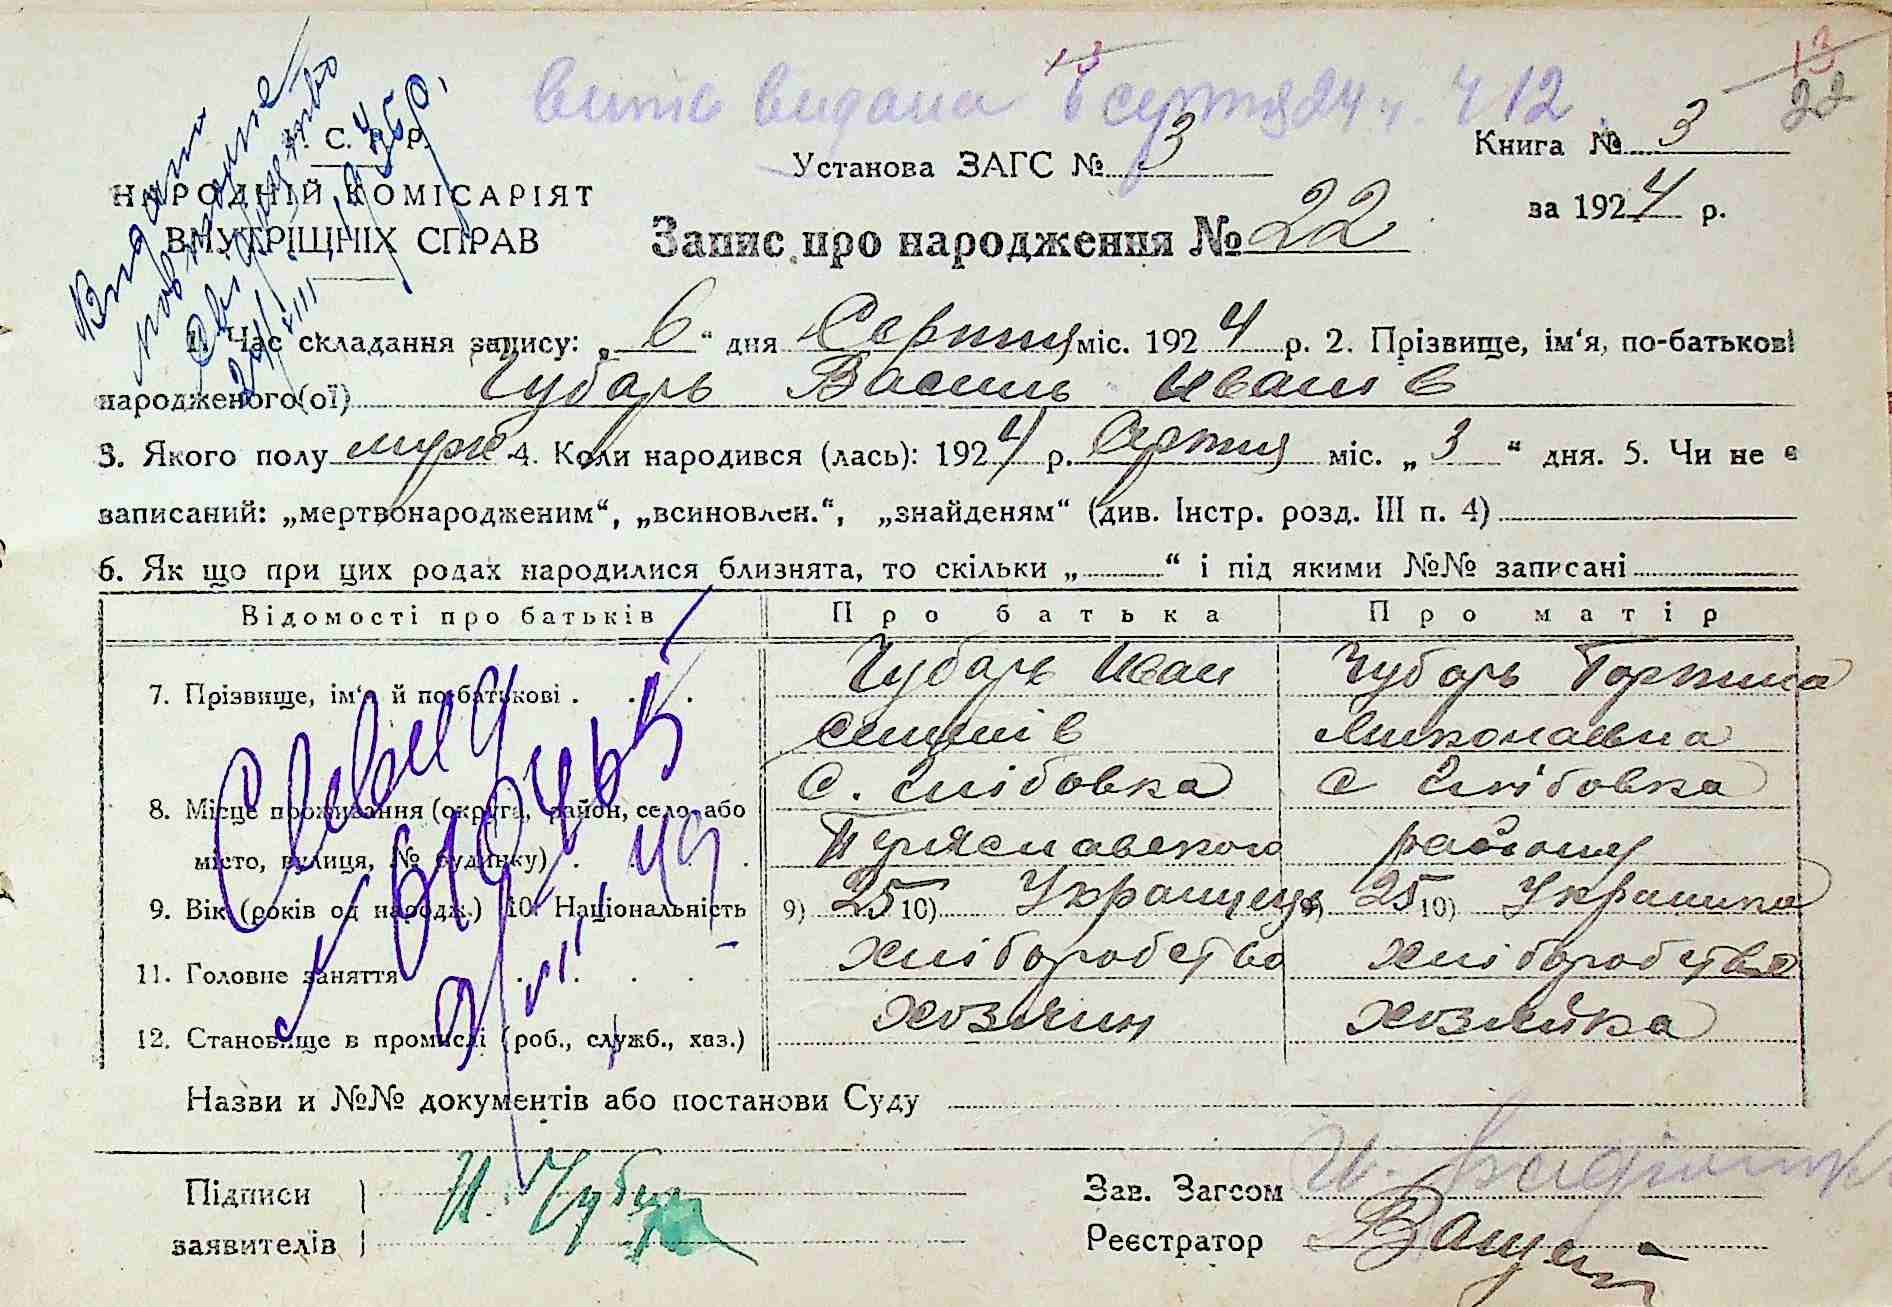 13
13
22
Випс видана 6 серпня 24 р. Ч 12
У. С. Р. Р.
Установа ЗАГС № 3
Книга № 3
НАРОДНІЙ КОМІСАРІЯТ
ВНУТРІШНІХ СПРАВ
за 1924 р.
Запис про народження № 22
Видано
повторне
свідоцтво
1. Час складання запису: „6“ дня Серпня міс. 1924 р. 2. Прізвище, ім‘я, по-батькові
народженого(ої) Чубарь Василь Иванів
3. Якого полу муж 4. Коли народився (лась): 1924 р. Серпня міс. „3“ дня. 5. Чи не є
записаний: „мертвонародженим“, „всиновлен.“, „знайденям“ (див. Інстр. розд. III п. 4)
6. Як що при цих родах народилися близнята, то скільки „ “ і під якими №№ записані
Відомості про батьків Про батька Про матір
7. Прізвище, ім‘я й по-батькові . . . . Чубарь Иван Чубарь Горпина
Николаевна
С. С
8. Місце проживання (округа, район, село або
місто, вулиця, № будинку) . . . . району
9. Вік (років од народж.) 10. Національність 9) 25 10) Украинець 9) 25 10) Украинка
11. Головне заняття . . . . . Хліборобство Хліборобство
12. Становище в промислі (роб., служб., хаз.) хозяин хозяйка
Назви и №№ документів або постанови Суду
Підписи
заявителів
И. Чубар
Зав. Загсом
Реєстратор